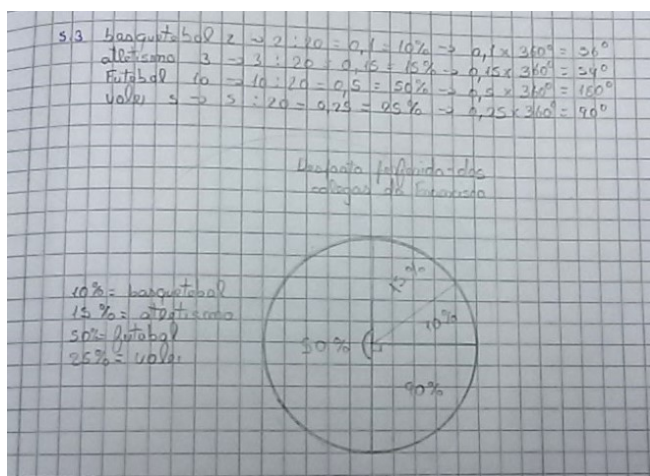 5.3 basquetebol 2 → 2 : 20 = 0,1 = 10% → 0,1 x 360° = 36°
atletismo 3 → 3 : 20 = 0,15 = 15% → 0,15 x 360° = 54°
Futebol 10 → 10 : 20 = 0,5 = 50% → 0,5 x 360° = 180°
volei 5 → 5 : 20 = 0,25 = 25% → 0,25 x 360° = 90°
Desporto preferido dos
colegas da
15%
10%
50%
90%
10% = basquetebol
15% = atletismo
50% = futebol
25% = volei